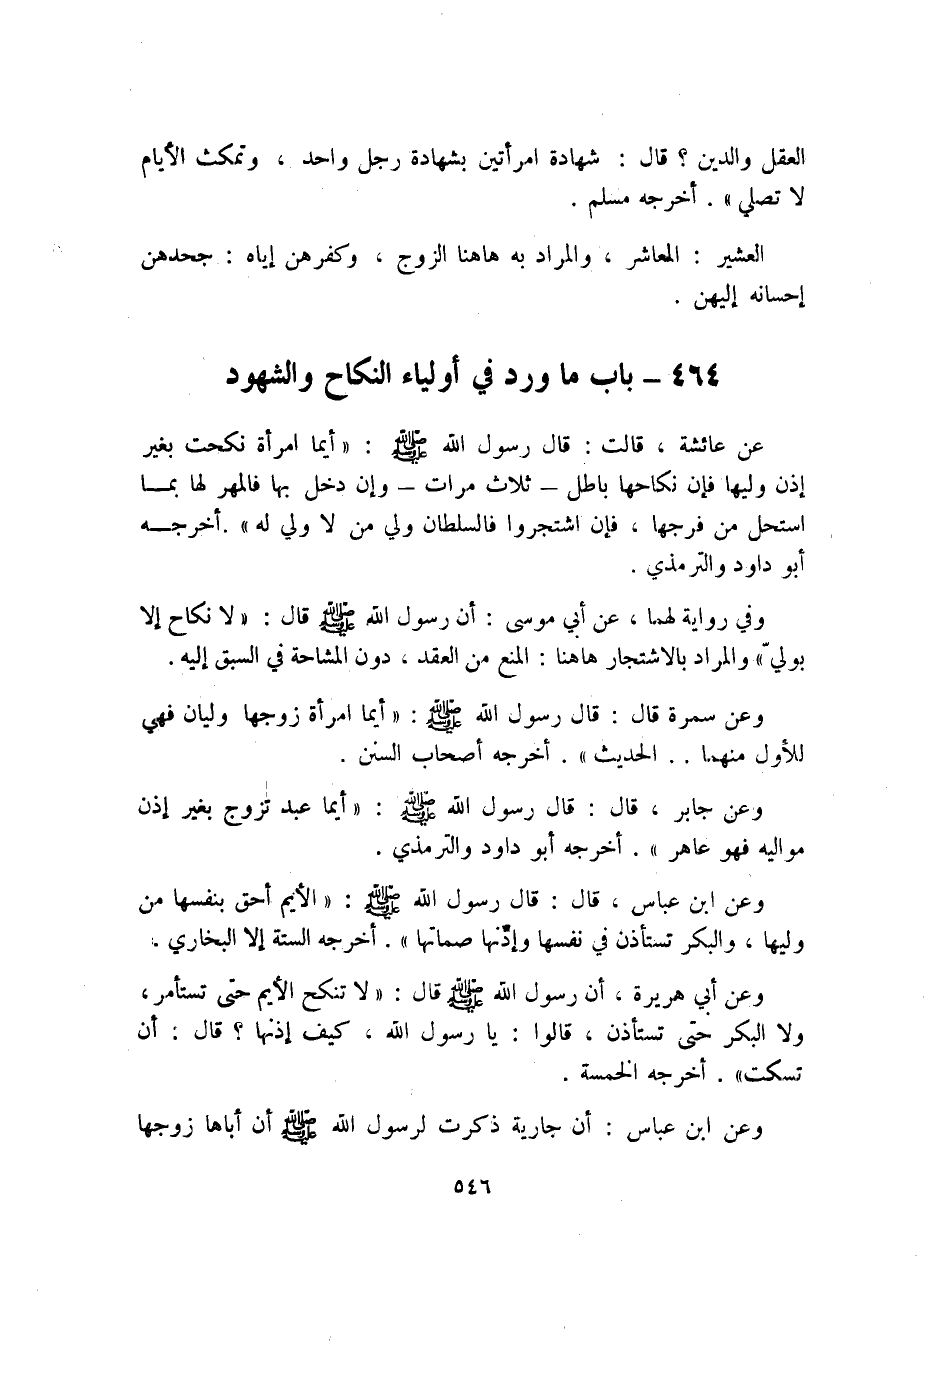 العقل والدين ؟ قال : شهادة امرأتين بشهادة رجل واحد ، وتمكث الأيام
لا تصلي » . أخرجه مسلم .
العشير : المعاشر ، والمراد به هاهنا الزوج ، وكفرهن إياه : جحدهن
إحسانه إليهن .
٤٦٤ – باب ما ورد في أولياء النكاح والشهود
عن عائشة ، قالت : قال رسول الله ﷺ : « أيما امرأة نكحت بغير
إذن وليها فإن نكاحها باطل – ثلاث مرات – وإن دخل بها فالمهر لها بمـــا
استحل من فرجها ، فإن اشتجروا فالسلطان ولي من لا ولي له » .أخرجـــه
أبو داود والترمذي .
وفي رواية لهما ، عن أبي موسى : أن رسول الله ﷺ قال : « لا نكاح إلا
بوليّ » والمراد بالاشتجار هاهنا : المنع من العقد ، دون المشاحة في السبق إليه .
وعن سمرة قال : قال رسول الله ﷺ : « أيما امرأة زوجها وليان فهي
للأول منهما . . الحديث » . أخرجه أصحاب السنن .
وعن جابر ، قال : قال رسول الله ﷺ : « أيما عبد تزوج بغير إذن
مواليه فهو عاهر » . أخرجه أبو داود والترمذي .
وعن ابن عباس ، قال : قال رسول الله ﷺ : « الأيم أحق بنفسها من
وليها ، والبكر تستأذن في نفسها وإذنها صماتها » . أخرجه الستة إلا البخاري .
وعن أبي هريرة ، أن رسول الله ﷺ قال : « لا تنكح الأيم حتى تستأمر ،
ولا البكر حتى تستأذن ، قالوا : يا رسول الله ، كيف إذنها ؟ قال : أن
تسكت» . أخرجه الخمسة .
وعن ابن عباس : أن جارية ذكرت لرسول الله ﷺ أن أباها زوجها
٥٤٦